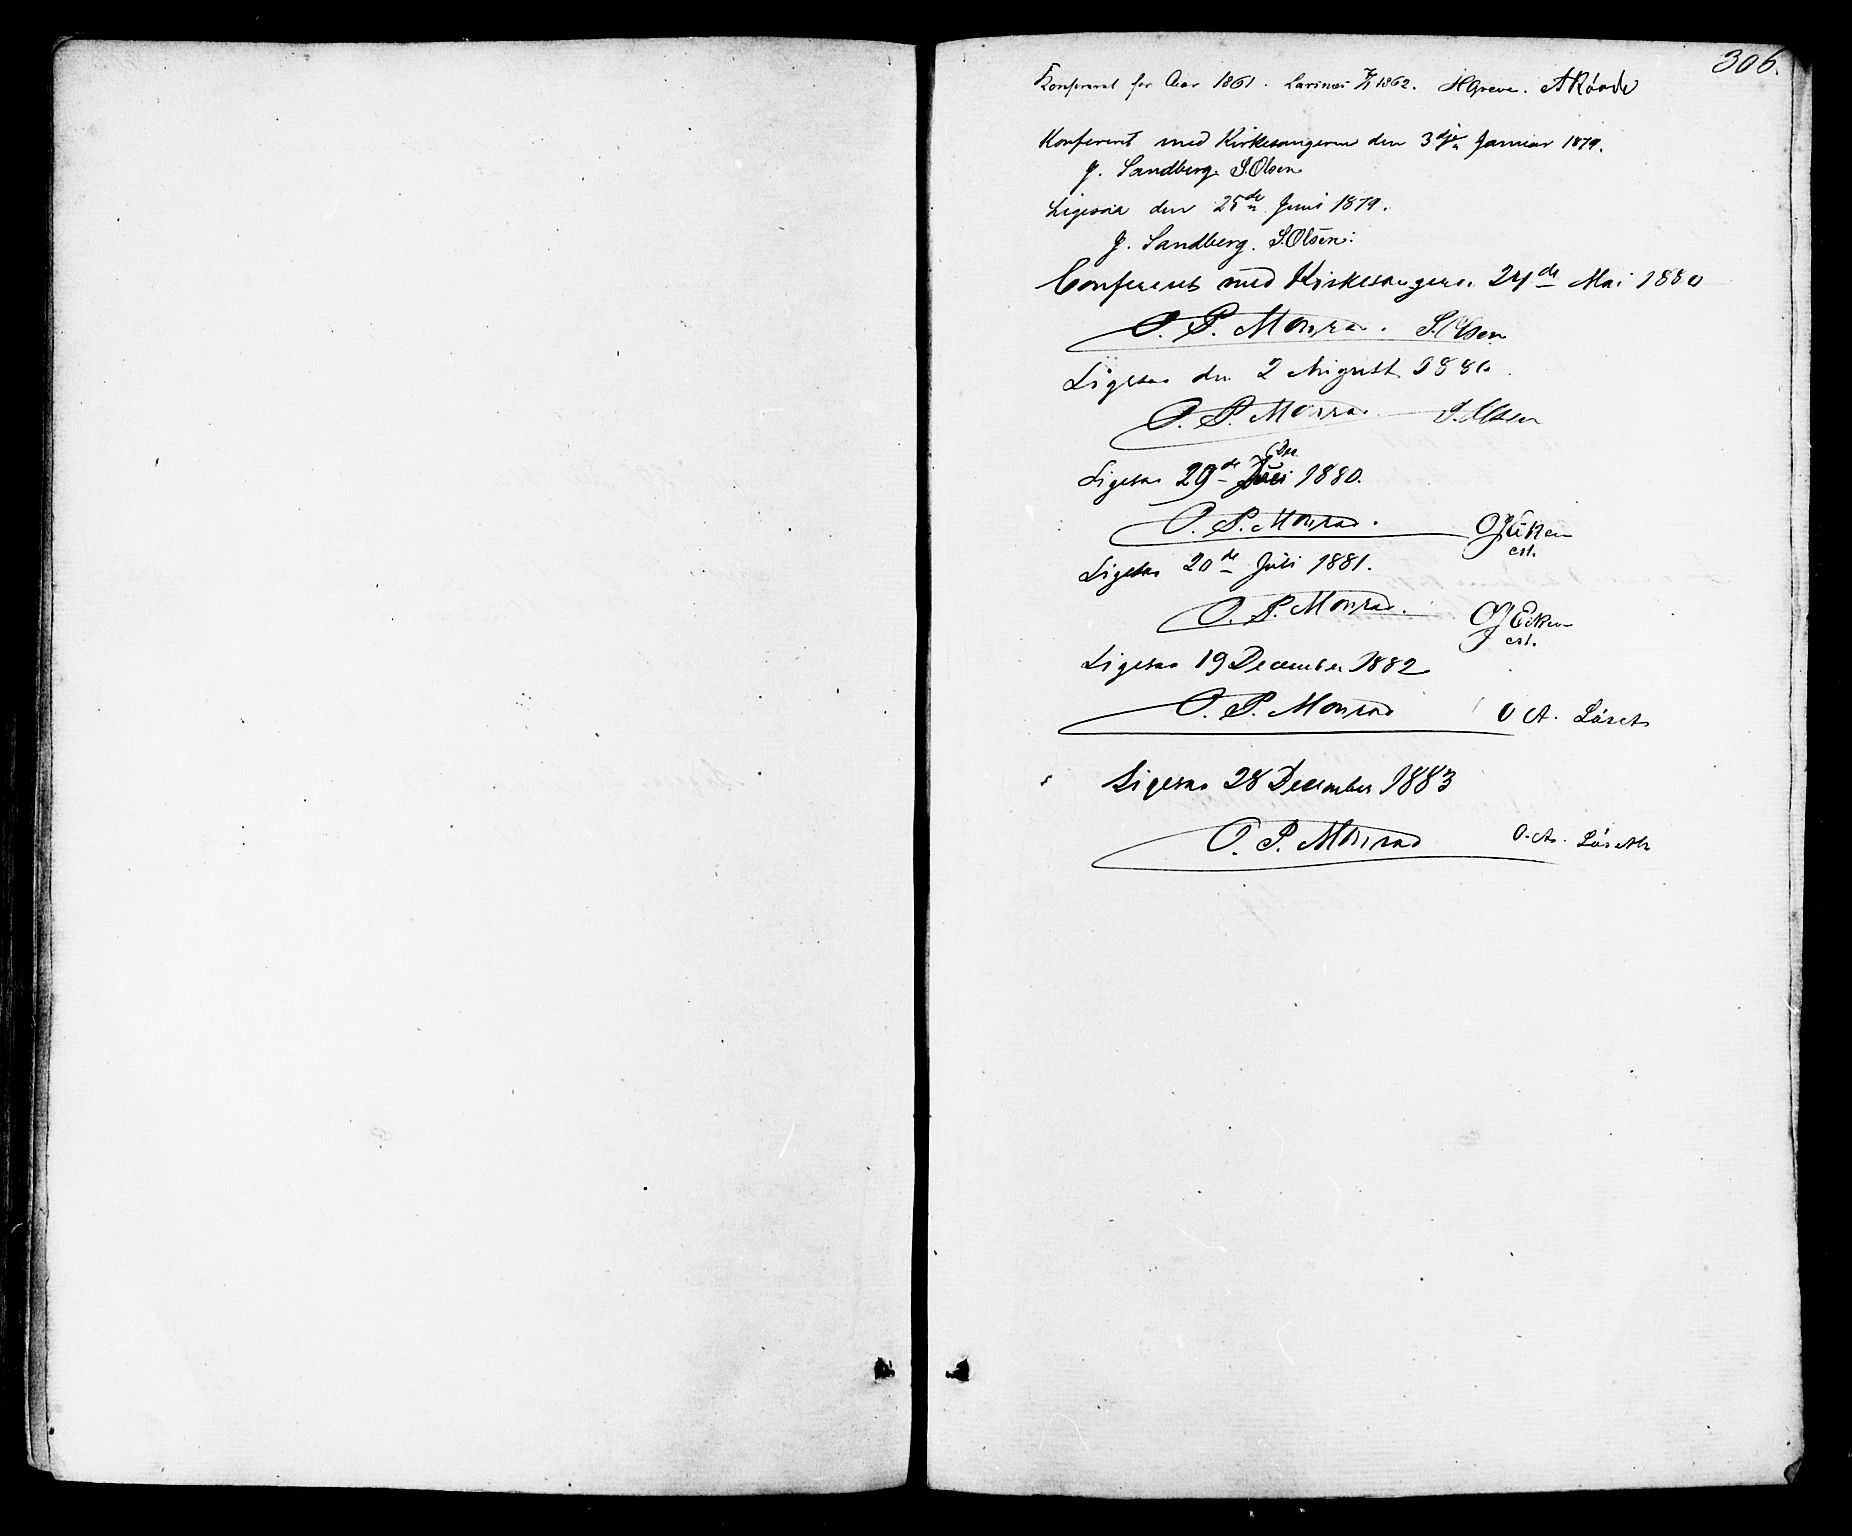 306.
Konfereret for Aar 1861. Larsnes 7/1 1862. HGreve. ARønde
Konfereret med Kirkesangeren den 3dje Januar 1879.
J. Sandberg. S.Olsen
Ligesaa den 25de Juni 1879.
J. Sandberg. S.Olsen.
Confereret med Kirkesangeren 24de Mai 1880
O. P. Monrad. S.Olsen
Ligesaa den 2 August 1880.
O. P. Monrad. S.Olsen
Ligesaa 29de Dec 1880.
O. P. Monrad.
cst.
Ligesaa 20de Juli 1881.
O. P. Monrad. Eiken
cst.
Ligesaa 19 December 1882
O. P. Monrad O A. Løseth
Ligesaa 28 December 1883
O. P. Monrad O. As. Løseth